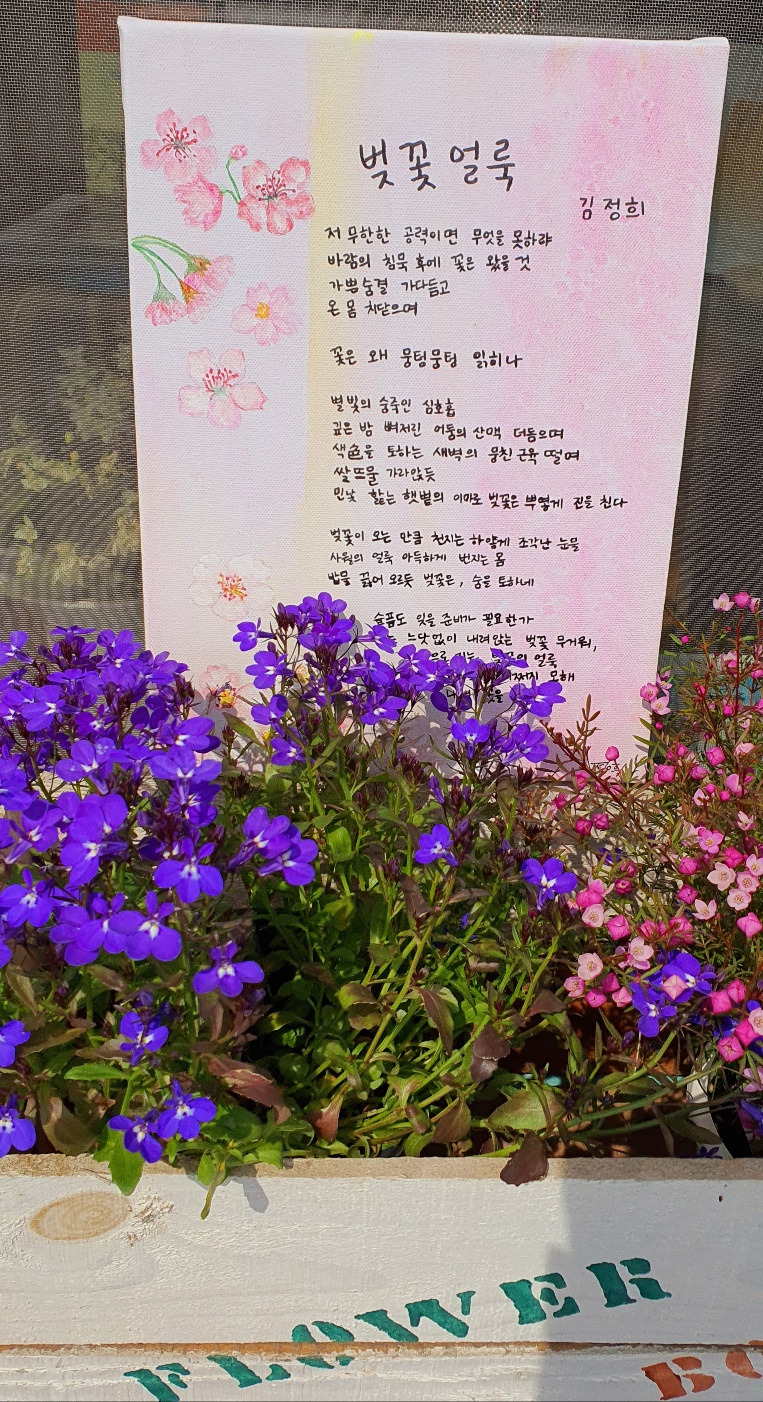 벚꽃 얼룩
김정희
저 무한한 공력이면 무엇을 못하랴
바람의 침묵 후에 꽃은 왔을 것
가쁜 숨결 가다듬고
온 몸 치닫으며
꽃은 왜 뭉텅뭉텅 읽히나
별빛의 숨죽인 심호흡
깊은 밤 뼈저린 어둠의 산맥 더듬으며
색色을 토하는 새벽의 뭉친 근육 떨며
쌀뜨물 가라앉듯
민낯 핥는 햇볕의 이마로 벚꽃은 뿌옇게 진을 친다
벚꽃이 오는 만큼 천지는 하얗게 조각난 눈물
사월의 얼룩 아득하게 번지는 봄
밥물 끓어 오르듯 벚꽃은, 숨을 토하네
슬픔도 잊을 준비가 필요한가
느닷없이 내려앉는 벚꽃 무거워,
얼룩
못해
FLOWER